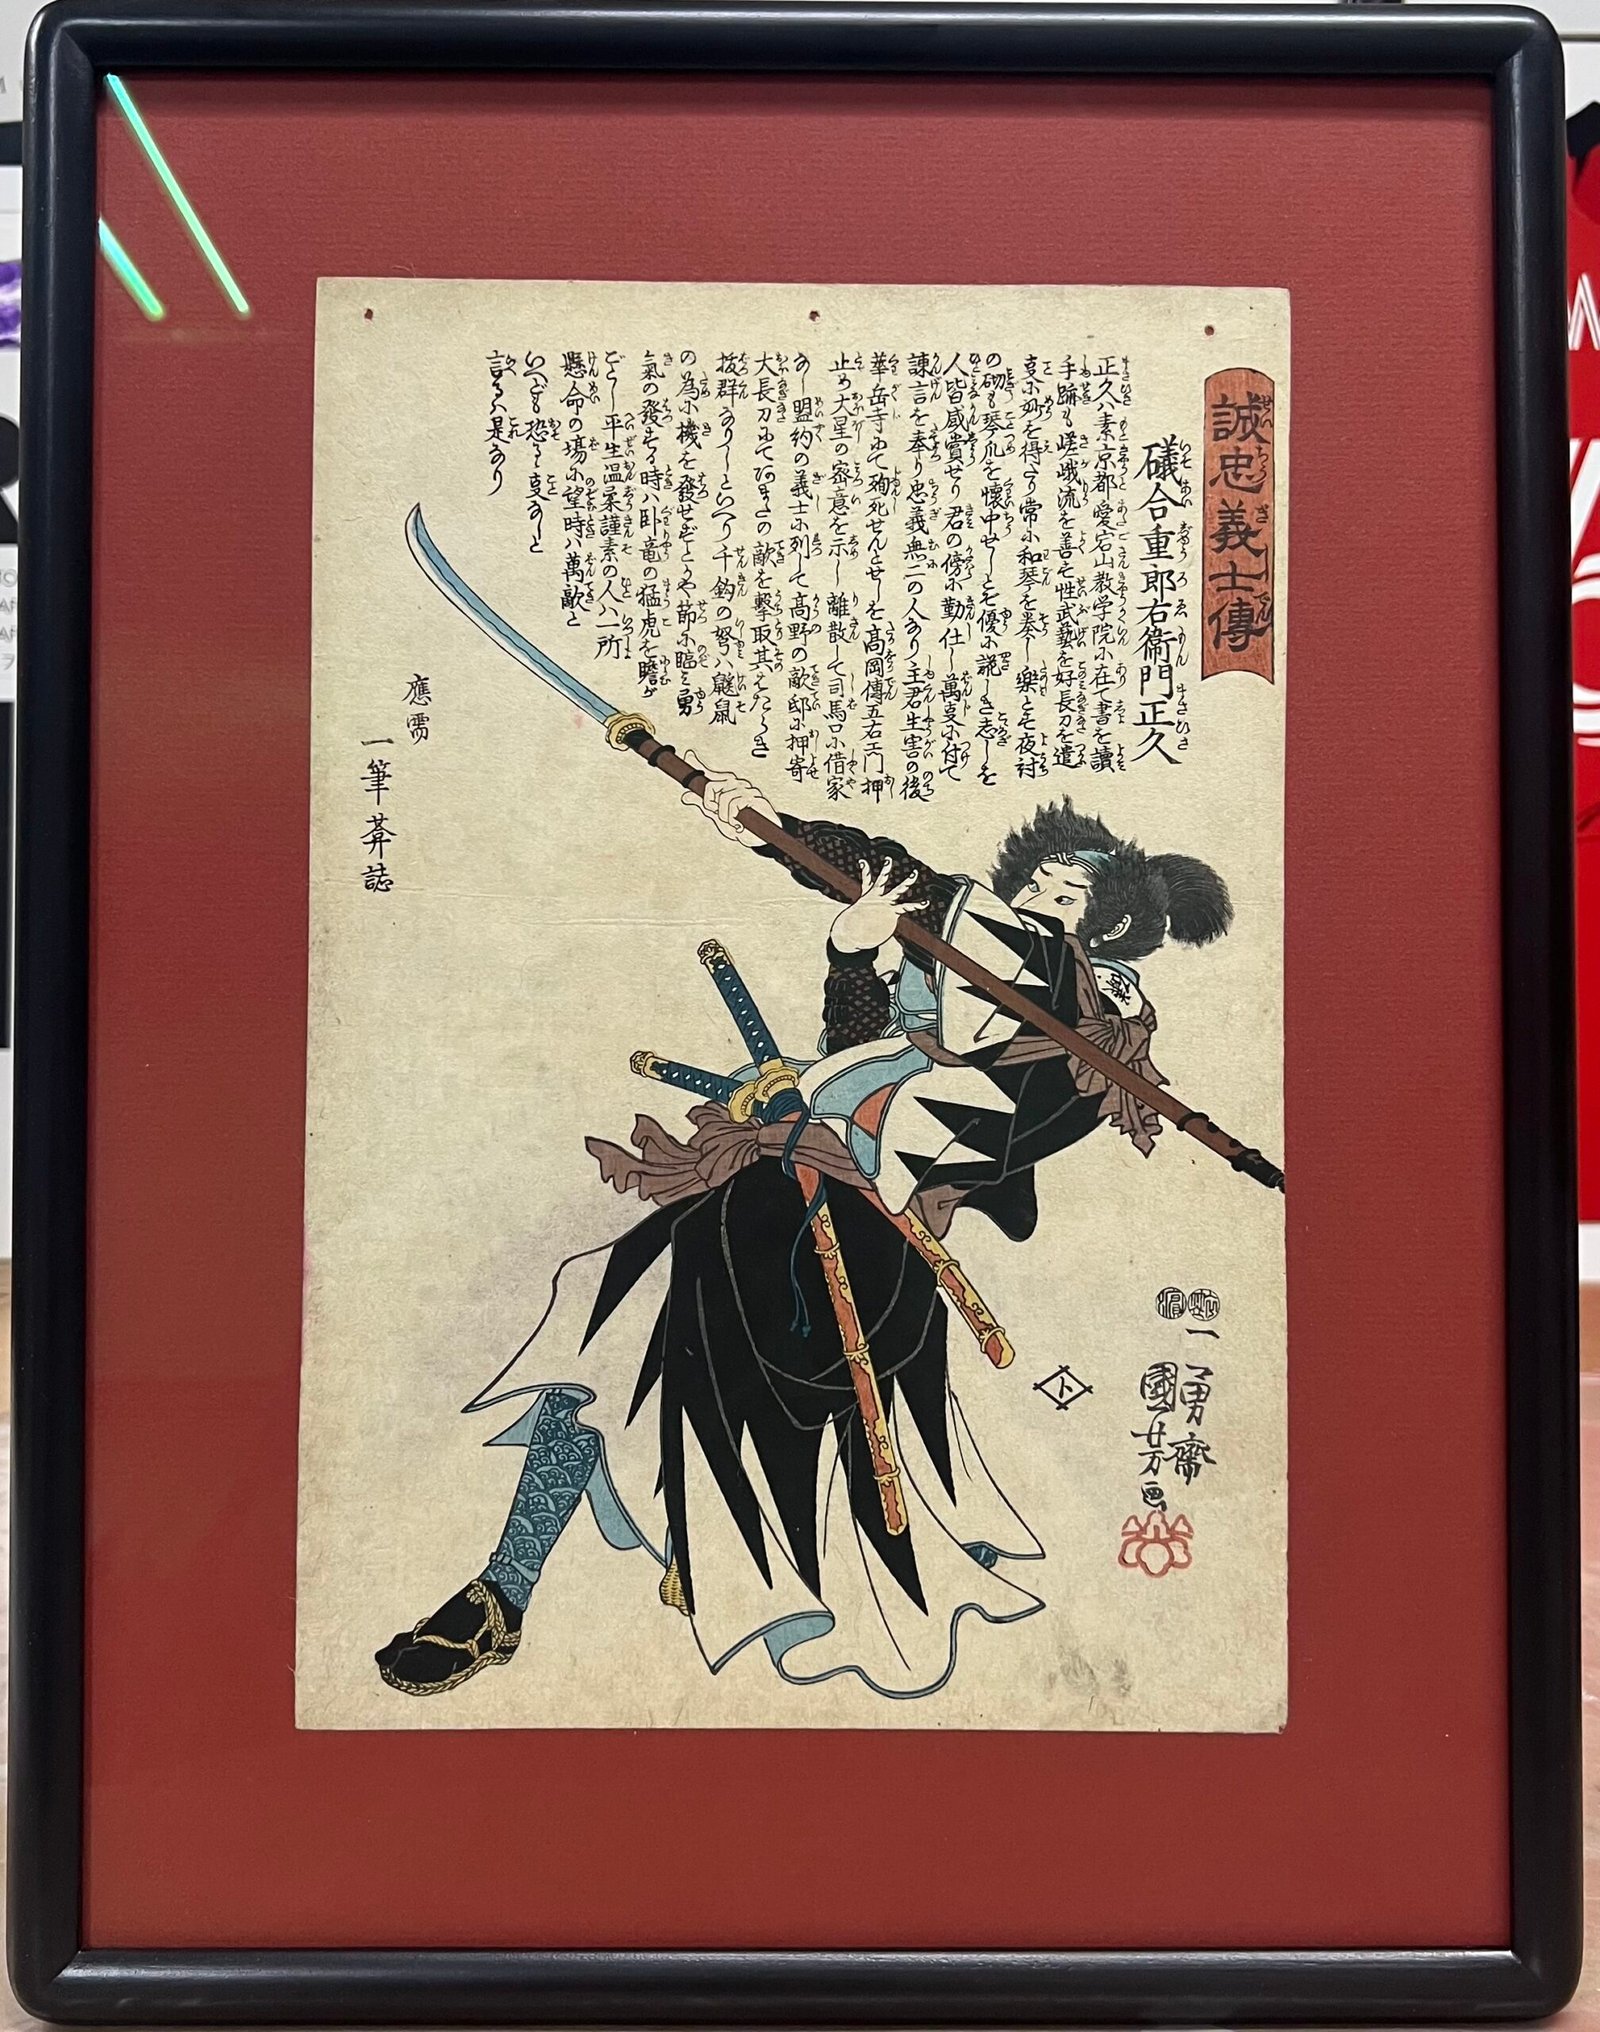 誠忠義士傳
せいちうぎしでん
礒合重郎右衛門正久
正久ハ素京都愛宕山教学院に在て書を讀
手跡も嵯峨流を善も性武藝を好長刀を遣
得たり常に和琴を
の砌も琴爪を懐中せしとぞ優に説しき志しを
人皆感賞せり君の傍に勤仕し萬事に付て
諌言を奉り忠義無二の人なり主君生害の後
華岳寺にて殉死せんとせしを髙岡傳五右エ門押
止め大星の密意を示し離散して司馬口に借家
なし盟約の義士に列して高野の敵邸に押寄
大長刀にてあまたの敵を撃取其はたらき
抜群なりしといへり千鈞の弩ハ鼷鼠
の為に機を發せずとかや節に臨み勇
氣の發する時ハ卧竜の猛虎を瞻が
ごとし平生温柔謹素の人ハ一所
懸命の場に望時ハ萬敵と
いへども恐るゝ事なしと
言るハ是なり
應需
一筆葊誌
一勇齋
國芳画